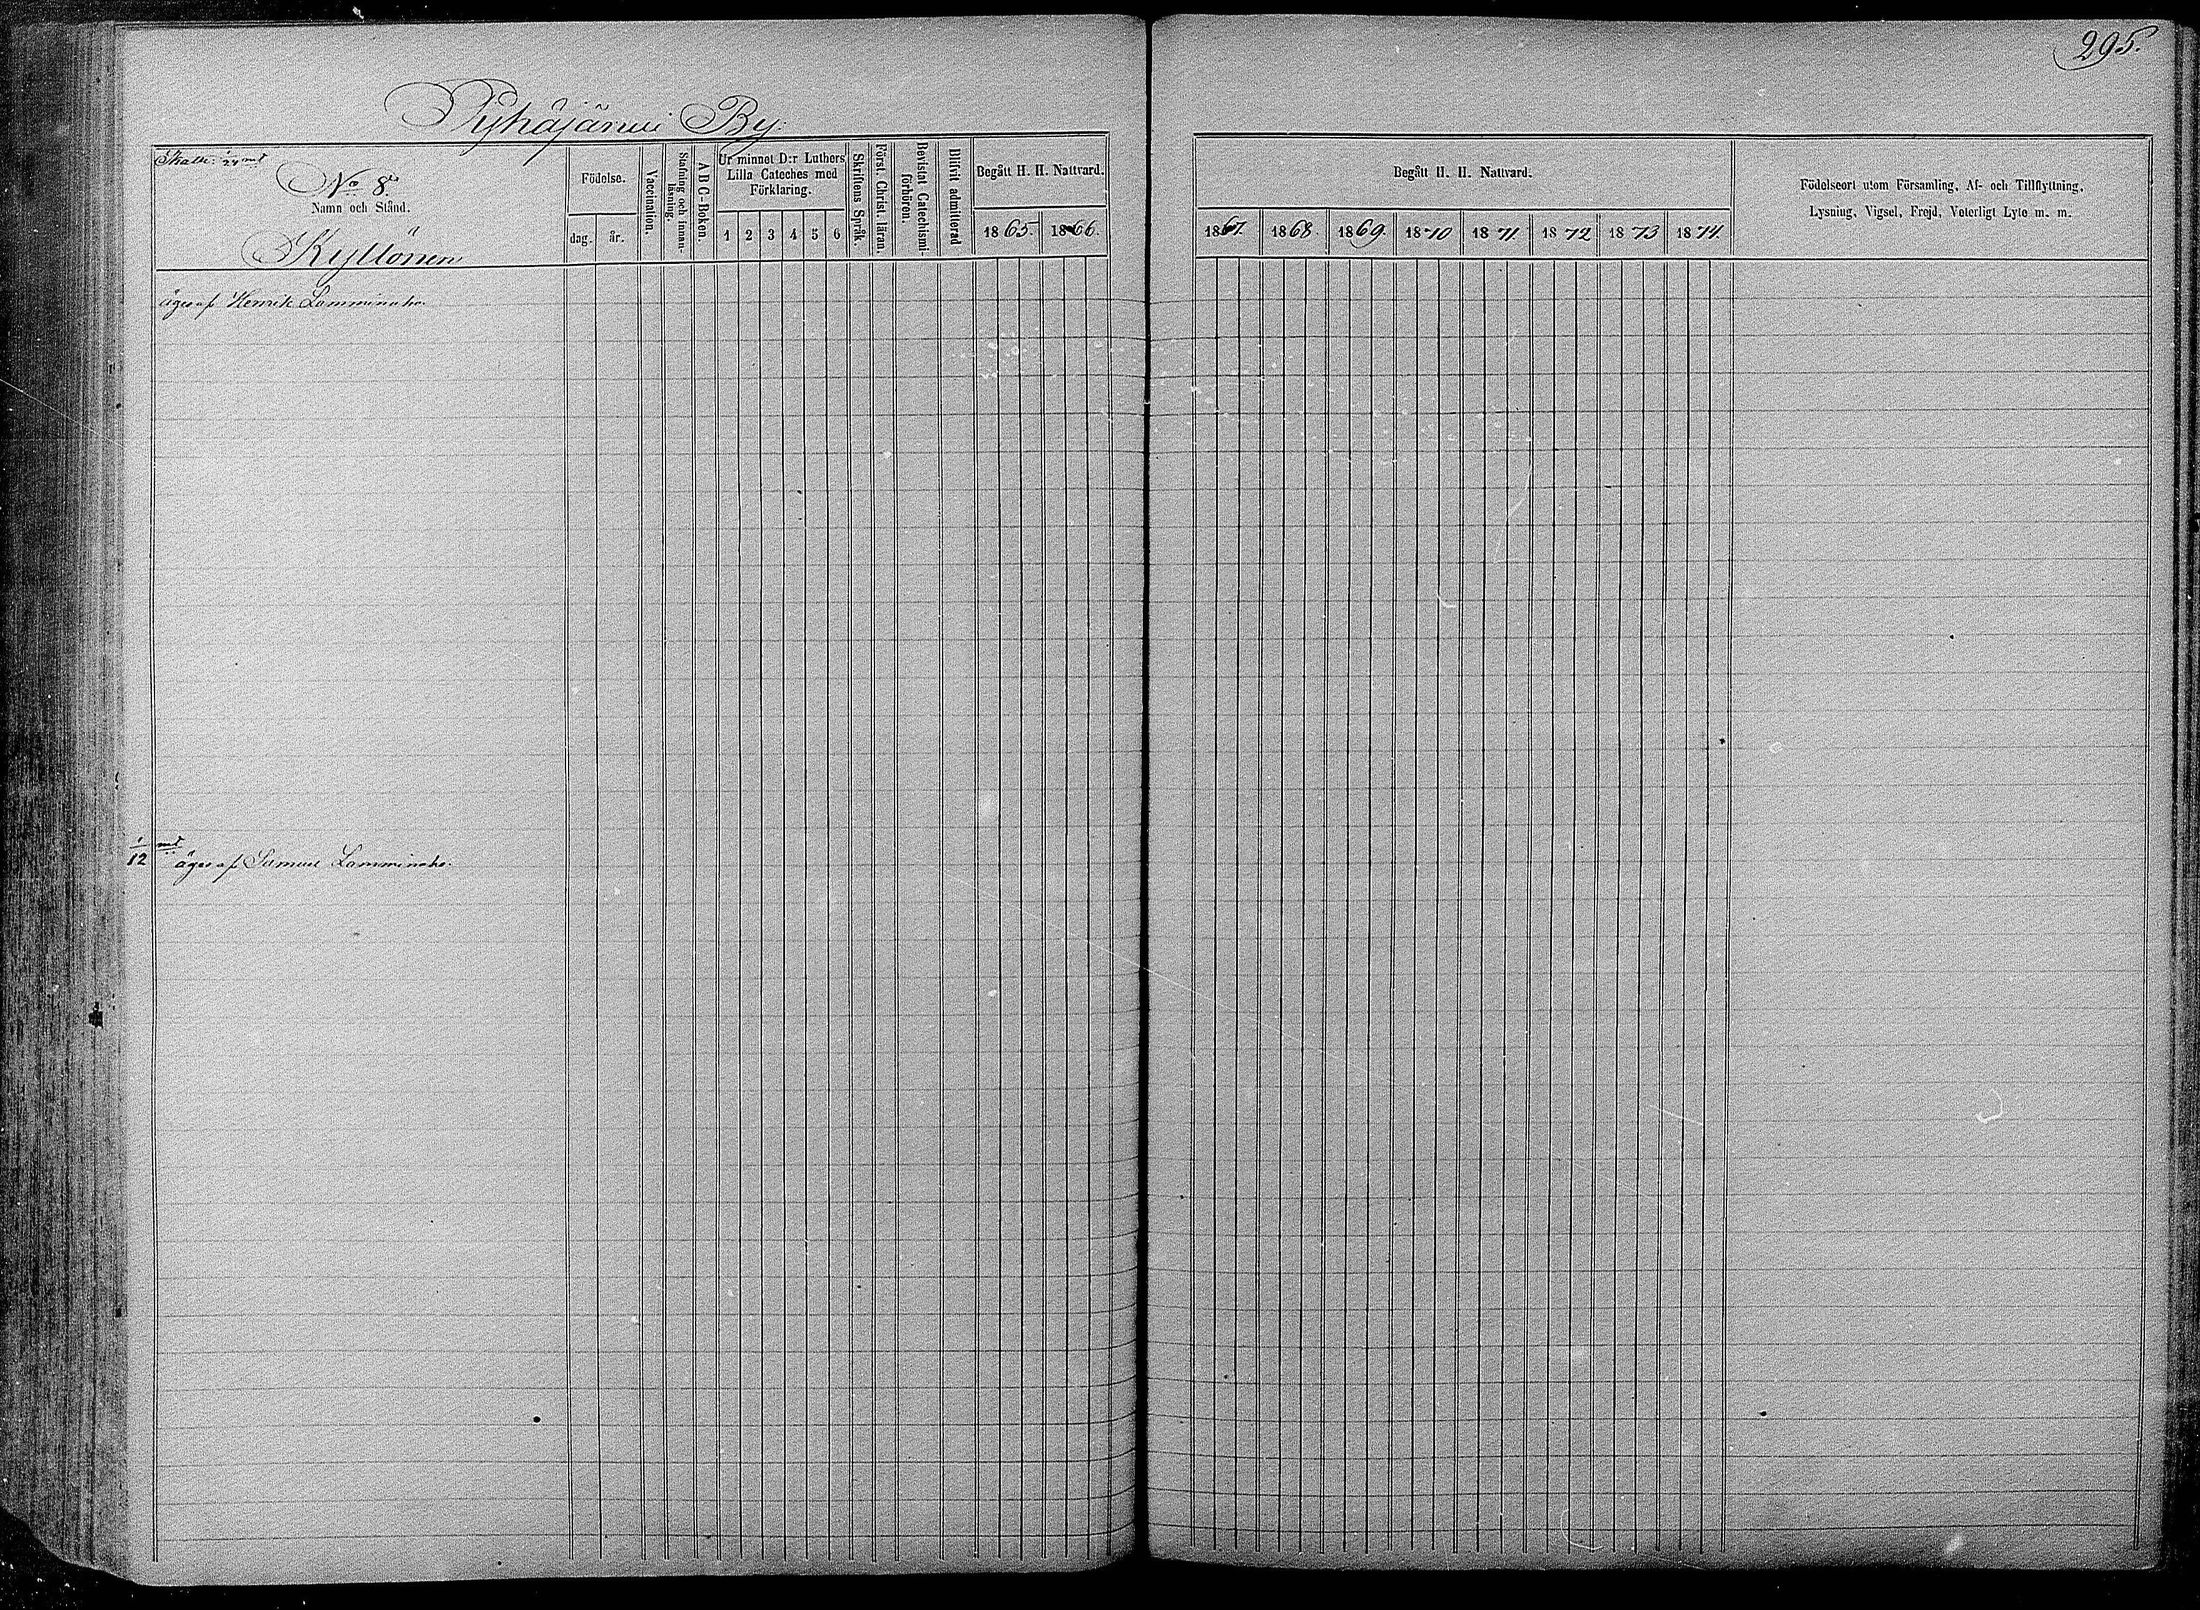 295.
Pyhäjärvi By.
Skatte: 1/24 mtl
No 8.
Namn och Stånd.
Kyllönen
Födelse.
dag. år.
Vaccination.
Stafning och innanläsning.
ABC-Boken.
Ur minnet D:r Luthers
Lilla Cateches med
Förklaring.
1 2 3 4 5 6
Skriftens Språk.
Först. Christ. läran.
Bevistat Catechismi-
förhören.
Blifvit admitterad
Begått H. H. Nattvard.
1865. 1866.
Begått H. H. Nattvard.
1867. 1868. 1869. 1870 1871. 1872 1873 1874.
Födelseort utom Församling, Af- och Tillflyttning,
Lysning, Vigsel, Frejd, Veterligt Lyte m. m.
äges af Henrik Lamminaho.
1/12 mtl äges af Samuel Lamminaho.